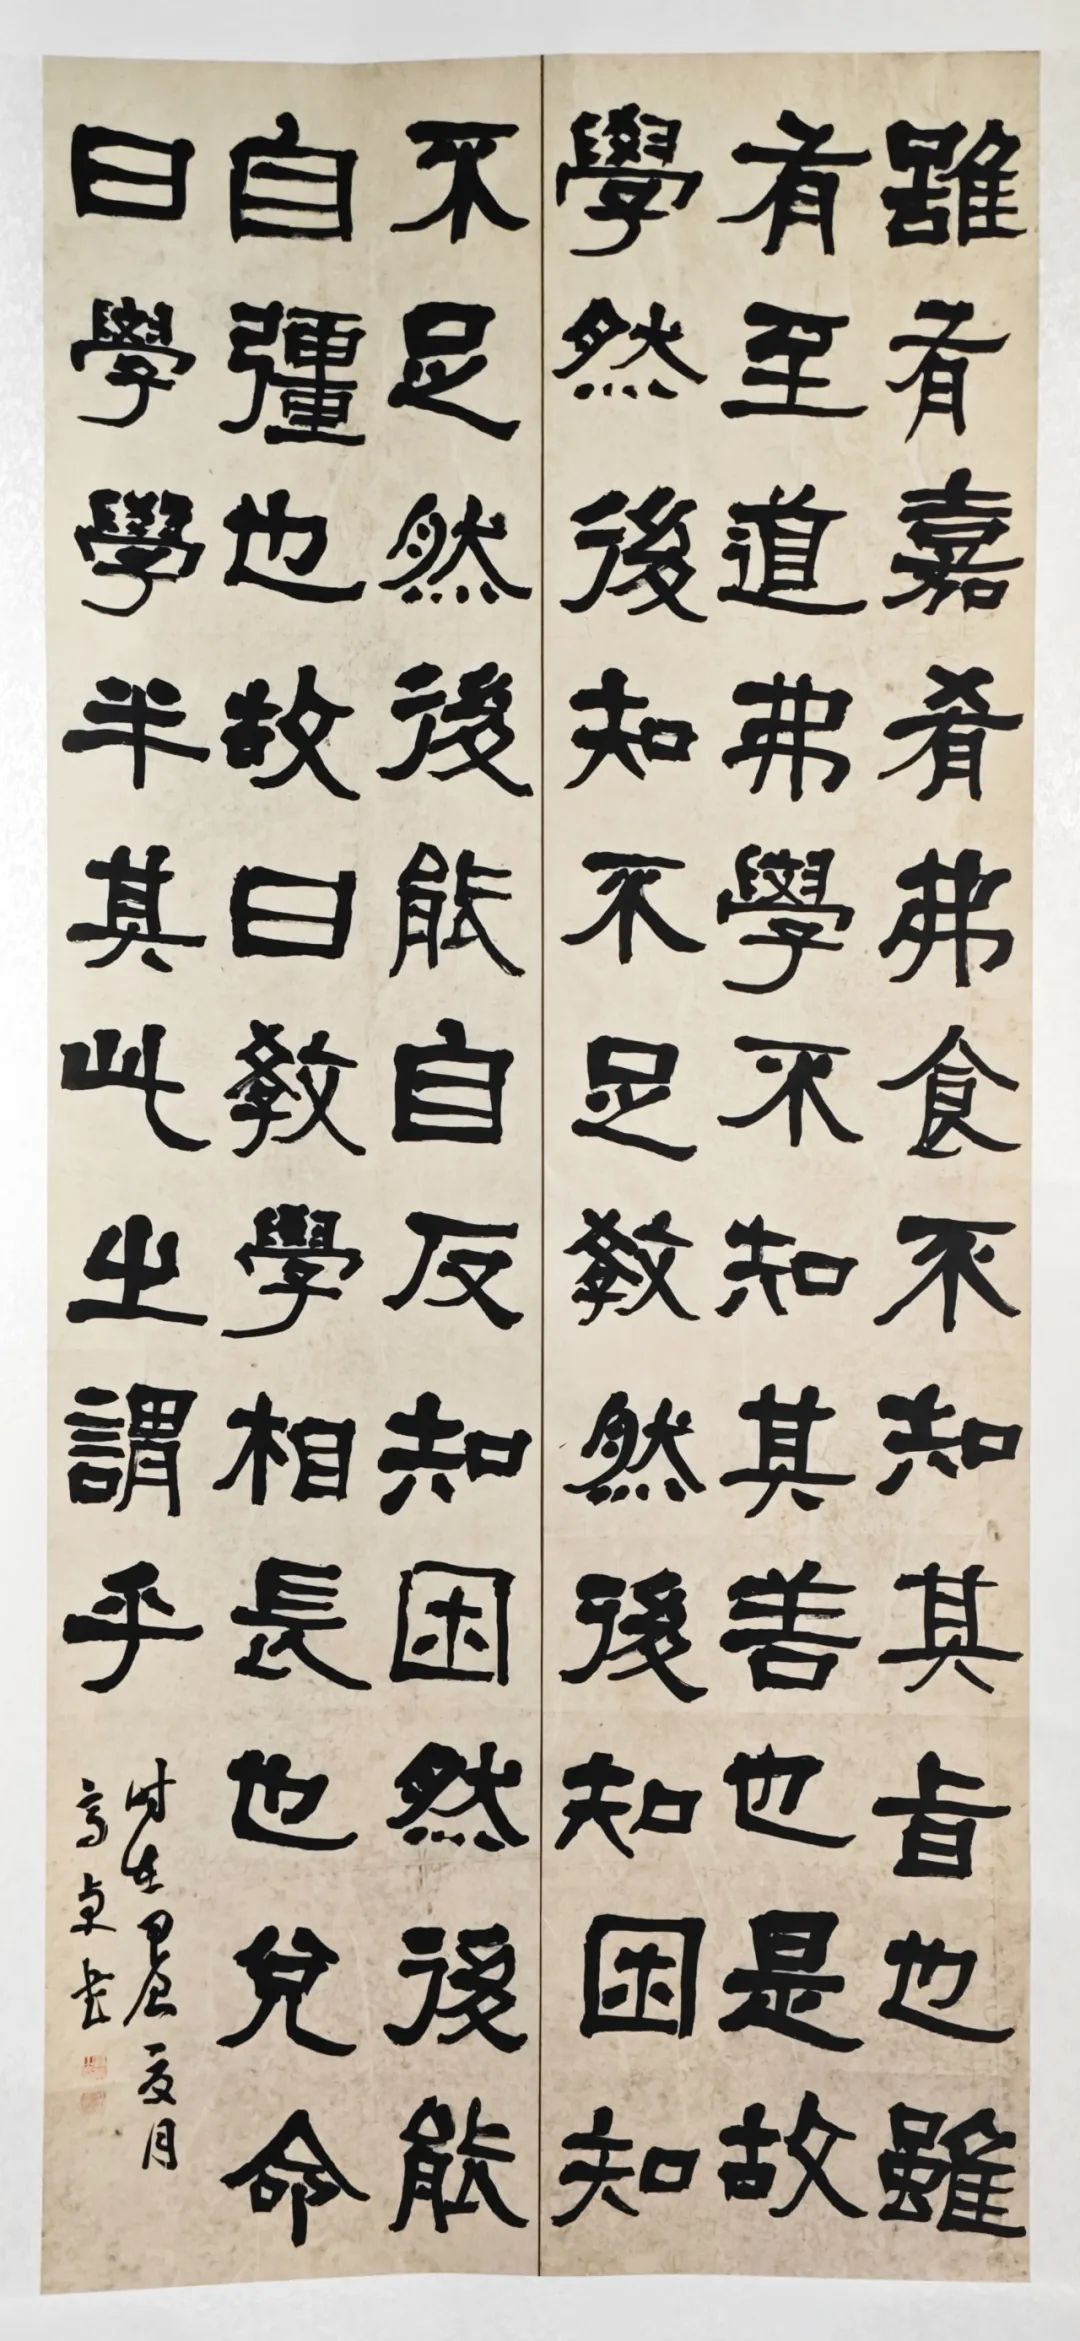 雖有嘉肴弗食不知其旨也雖
有至道弗學不知其善也是故
學然後知不足教然後知困知
不足然後能自反知困然後能
自彊也故曰教學相長也兌命
曰學學半其此之謂乎
時在甲辰夏月
高貞書